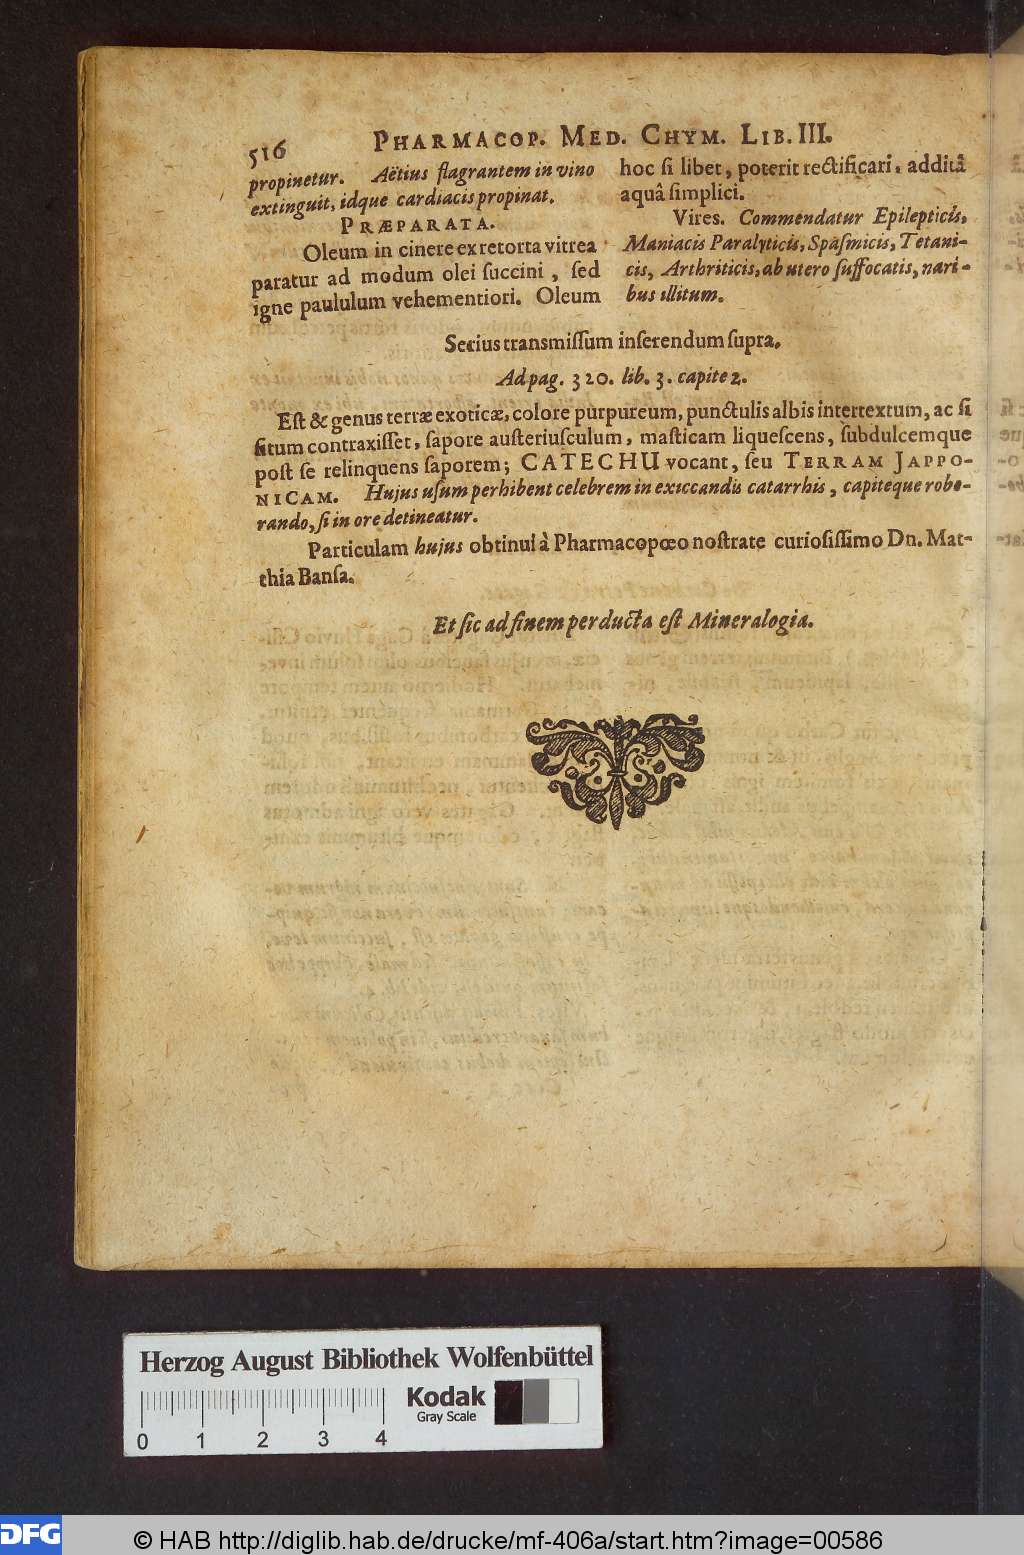 516
PHARMACOP. MED. CHYM. LIB. III.
propinetur. Aëtius flagrantem in vino
extinguit, idque cardiacis propinat.
PRÆPARATA.
Oleum in cinere ex retorta vitrea
paratur ad modum olei ſuccini, ſed
igne paululum vehementiori. Oleum
hoc ſi libet, poterit rectificari, additâ
aquâ ſimplici.
Vires. Commendatur Epilepticis,
Maniacis Paralyticis, Spaſmicis, Tetani-
cis, Arthriticis, ab utero ſuffocatis, nari-
bus illitum.
Serius transmiſſum inſerendum ſupra.
Ad pag. 320. lib. 3. capite 2.
Eſt & genus terræ exoticæ, colore purpureum, punctulis albis intertextum, ac ſi
ſitum contraxiſſet, ſapore auſteriuſculum, maſticam liqueſcens, ſubdulcemque
poſt ſe relinquens ſaporem; CATECHU vocant, ſeu TERRAM JAPPO-
NICAM. Hujus uſum perhibent celebrem in exiccandis catarrhis, capiteque robo-
rando, ſi in ore detineatur.
Particulam hujus obtinui à Pharmacopœo noſtrate curioſiſſimo Dn. Mat-
thia Banſa.
Et ſic ad finem perducta eſt Mineralogia.
Herzog August Bibliothek Wolfenbüttel
Kodak
Gray Scale
0 1 2 3 4
DFG
© HAB http://diglib.hab.de/drucke/mf-406a/start.htm?image=00586